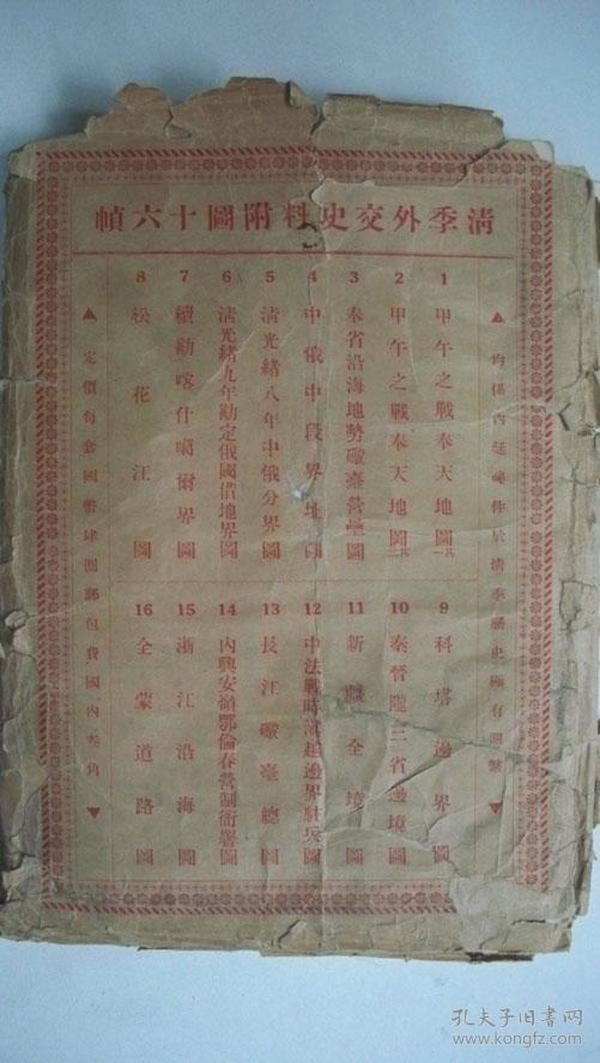 清季外交史料附圖十六幀
▲內係內廷祕件於清季歷史極有關繫▼
1 甲午之戰奉天地圖其一
2 甲午之戰奉天地圖其二
3 奉省沿海地勢礮臺營壘圖
4 中俄中段界址圖
5 清光緒八年中俄分界圖
6 清光緒九年勘定俄國借地界圖
7 續勘喀什噶爾界圖
8 松花江圖
9 科塔邊界圖
10 秦晉隴三省邊境圖
11 新疆全境圖
12 中法戰時滇越邊界駐兵圖
13 長江礮臺總圖
14 內興安嶺鄂倫春營制衙署圖
15 浙江沿海圖
16 全蒙道路圖
▲定價每套國幣肆圓郵包費國內叁角▼
孔夫子旧书网
www.kongfz.com